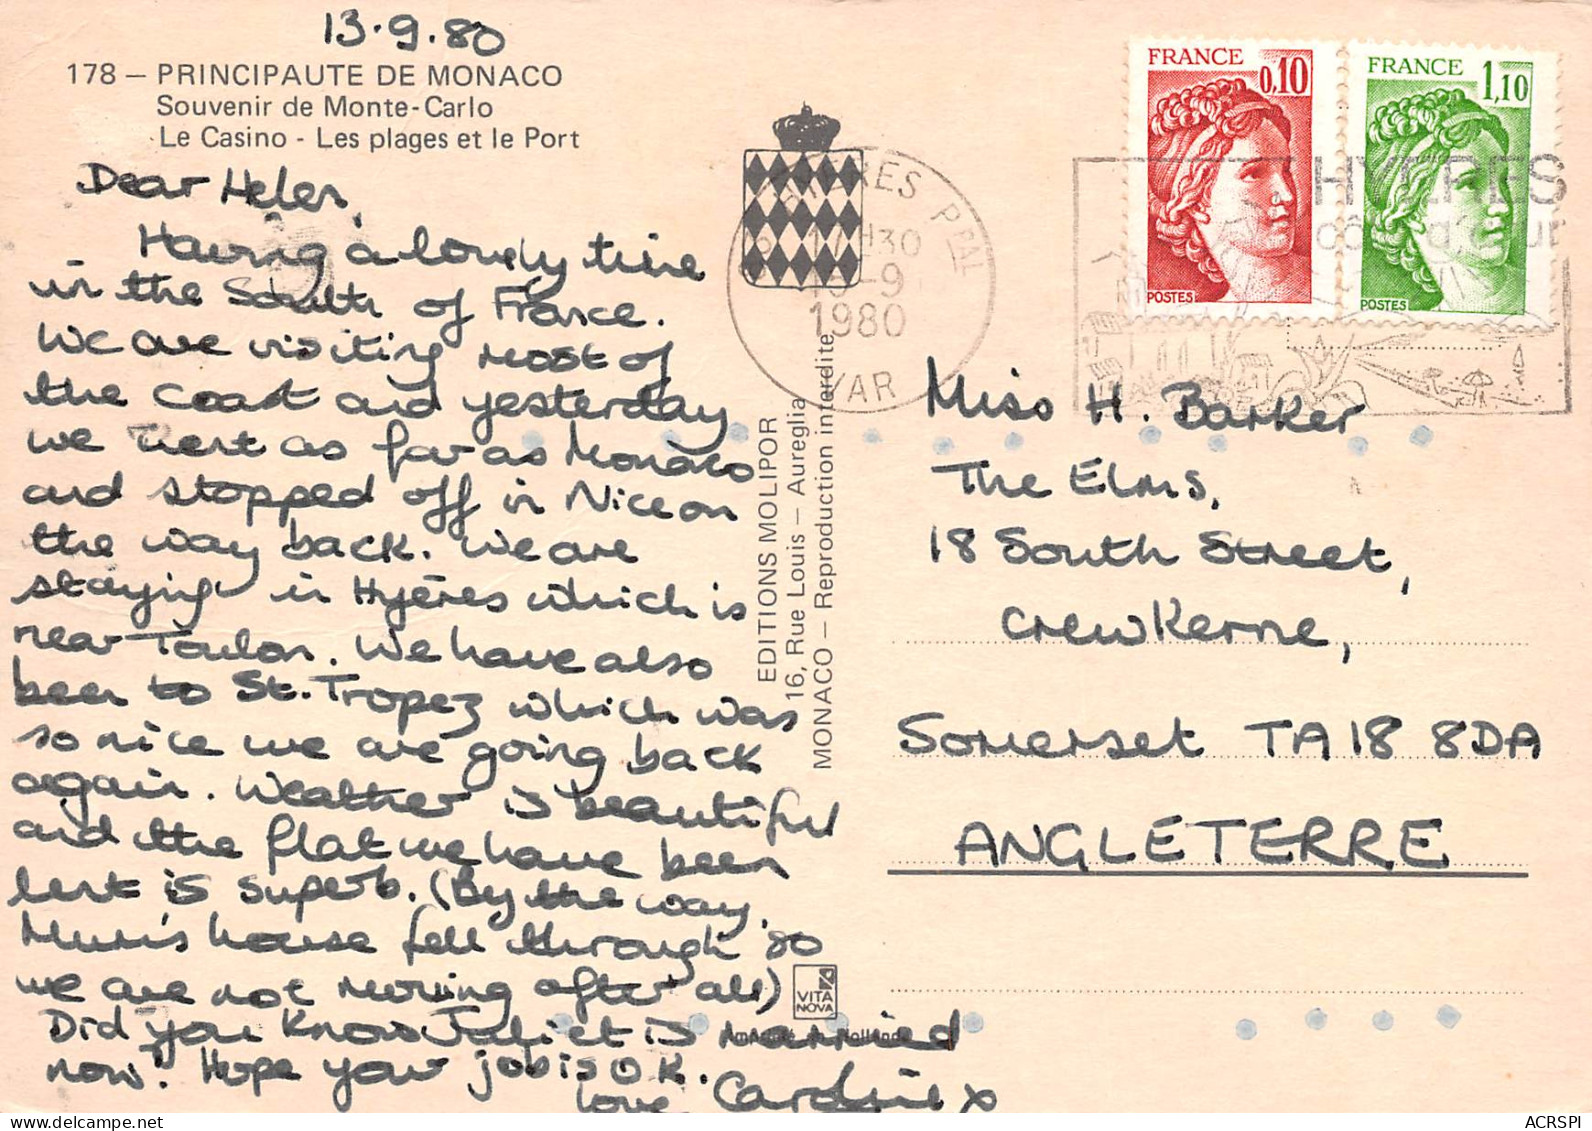 13.9.80
178 – PRINCIPAUTE DE MONACO
Souvenir de Monte-Carlo
Le Casino - Les plages et le Port
Dear Helen,
Having a lovely time
in the South of France.
We are visiting most of
the coast and yesterday
we went as far as Monaco
and stopped off in Nice on
the way back. We are
staying in Hyères which is
near Toulon. We have also
been to St. Tropez which was
so nice we are going back
again. Weather is beautiful
and the flat we have been
lent is superb. (By the way,
Mum's house fell through so
we are not moving after all)
Did you know Juliet is married
now? Hope your job is O.K.
Love Caroline x
EDITIONS MOLIPOR
16, Rue Louis – Aureglia
MONACO – Reproduction interdite
VITA
NOVA
HYERES PPAL
17H30
13-9
1980
VAR
FRANCE 0,10
POSTES
FRANCE 1,10
POSTES
HYERES
côte d'azur
Miss H. Barker
The Elms,
18 South Street,
Crewkerne,
Somerset TA18 8DA
ANGLETERRE
ACRSPI